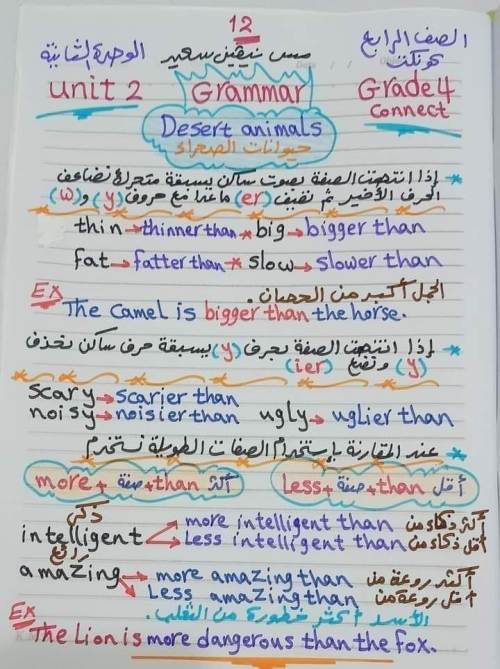 12
الصف الرابع
كونكت
مس شيرين سعيد
الوحدة الثانية
unit 2
Grammar
Grade 4
Connect
Desert animals
حيوانات الصحراء
* إذا انتهت الصفة بصوت ساكن يسبقة متحرك نضاعف
الحرف الأخير ثم نضيف (er) ماعدا مع حروف (y) و (w)
thin → thinner than * big → bigger than
fat → fatter than * slow → slower than
الجمل أكبر من الحصان.
EX The Camel is bigger than the horse.
* إذا انتهت الصفة بحرف (y) يسبقة حرف ساكن نحذف
(y) ونضع (ier)
scary → scarier than
noisy → noisier than ugly → uglier than
* عند المقارنة بإستخدام الصفات الطويلة نستخدم
more + صفة + than أكثر
Less + صفة + than أقل
ذكي
intelligent
more intelligent than أكثر ذكاء من
Less intelligent than أقل ذكاء من
رائع
amazing
more amazing than أكثر روعة من
Less amazing than أقل روعة من
الأسد أكثر خطورة من الثعلب.
EX The Lion is more dangerous than the fox.